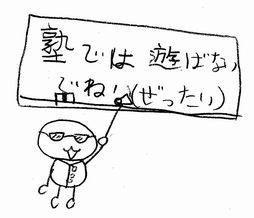 塾では遊ばない
でね!(ぜったい)